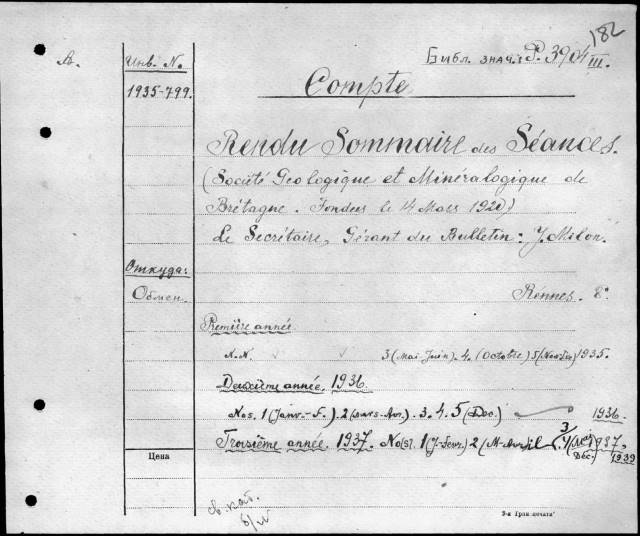 182
А. Инв. № Библ. знач. P. 3904 III.
1935-799. Compte
Rendu Sommaire des Séances.
(Société Geologique et Minéralogique de
Brétagne. Fondeés le 14 Mars 1920)
Le Secrétaire, Gérant du Bulletin: Y. Milon.
Откуда:
Обмен. Rennes. 8°
Première année.
N.N. 3 (Mai-Juin). 4. (Octobre) 5 (Nov-Dec) 1935.
Deuxième année. 1936.
Nos. 1 (Janv.-F.). 2 (Mars-Avr.). 3. 4. 5 (Dec.) 1936
Troisième année. 1937. No(s). 1 (J-Fevr.) 2 (M-Avril) 3 1937
Цена Déc.) 1939
8/IV
3-я Грав. печати